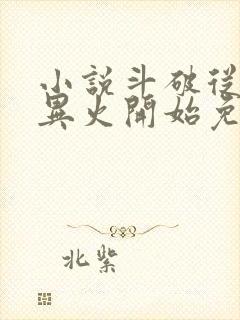 小說斗破從
異火開始免
北紫